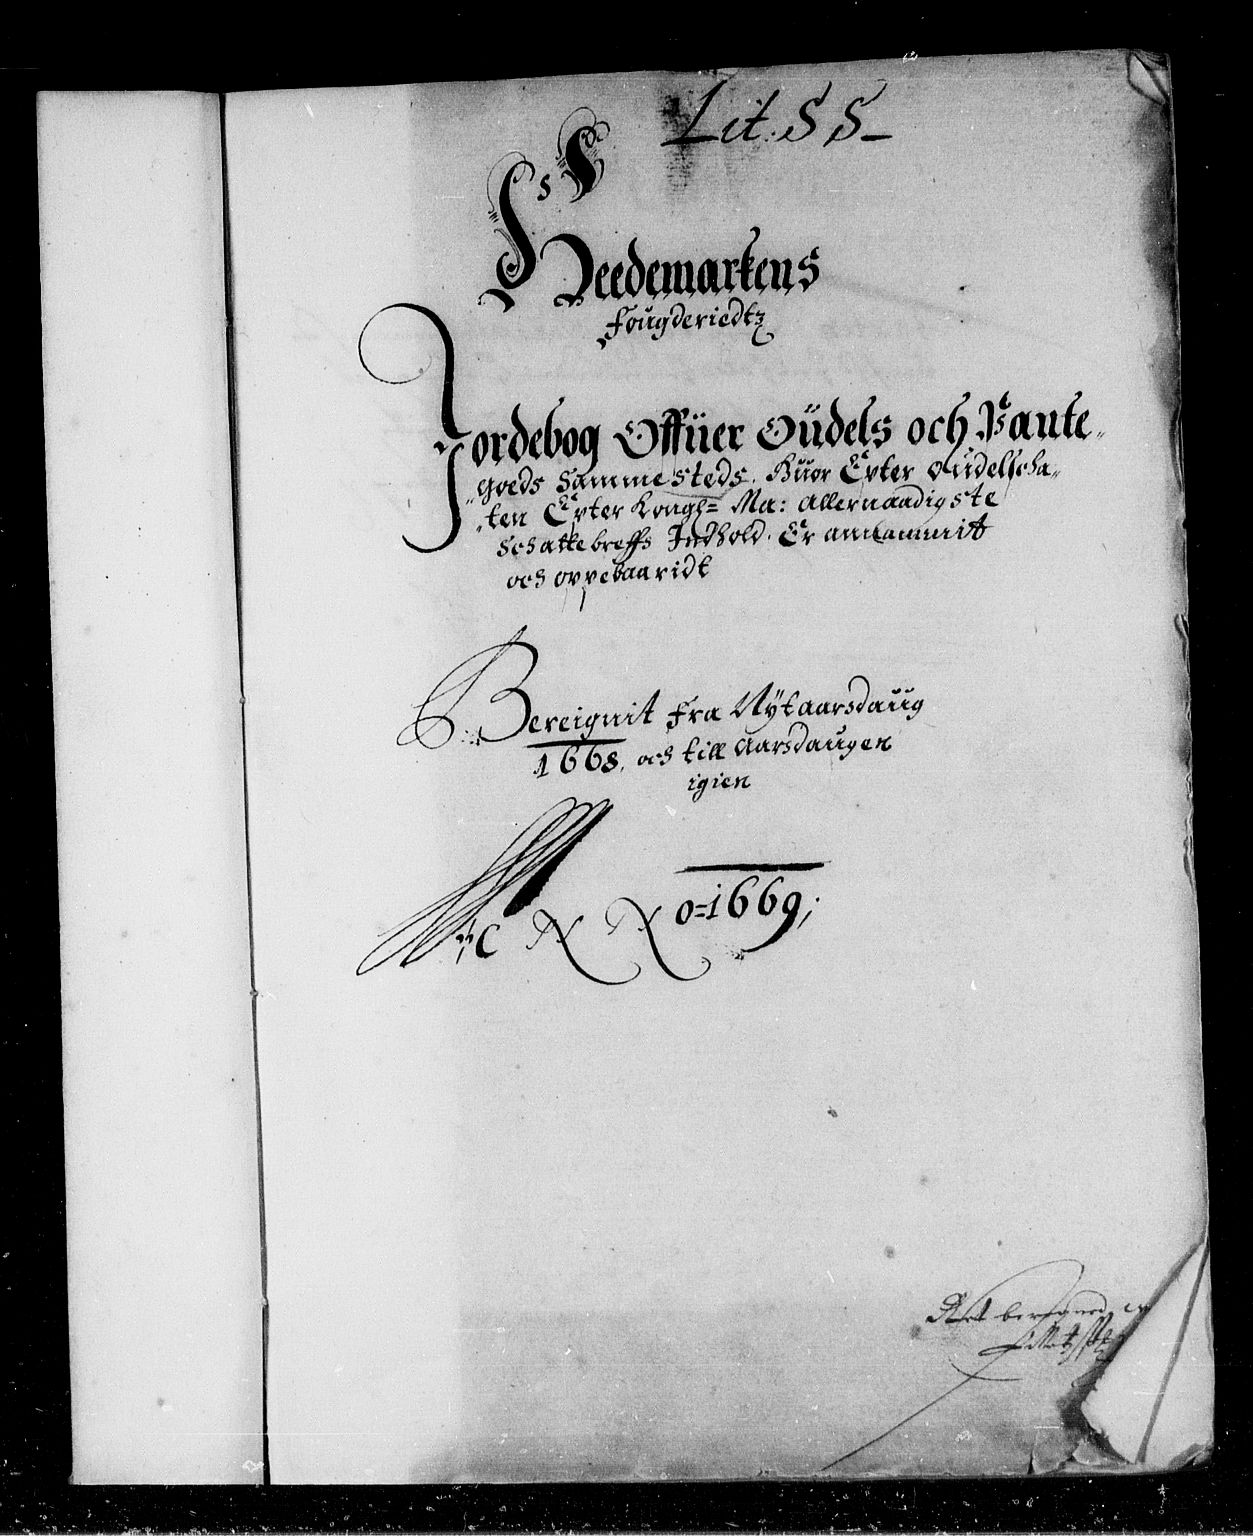 Lit: SS
Heedemarkens
Fougderiedtz
Jordebog Offüer Oüdels och Pante-
goeds Sammesteds. Huor Epter oudelscha-
ten Epter Kongl= Ma: allernaadigste
Schattebreffs Indhold. Er annammit
och oppebaaridt
Bereignit fra Nÿtaarsdaug
1668. och till Aarsdaugen
igien
Ao=1669;
Ret beregned